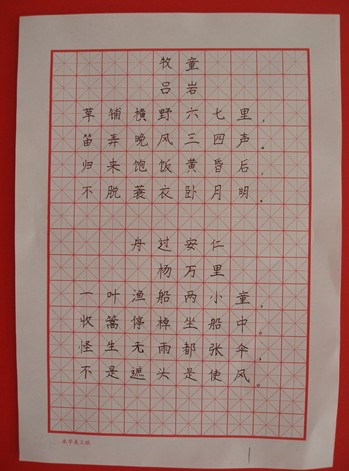 牧童
吕岩
草铺横野六七里，
笛弄晚风三四声。
归来饱饭黄昏后，
不脱蓑衣卧月明。
舟过安仁
杨万里
一叶渔船两小童，
收篙停棹坐船中。
怪生无雨都张伞，
不是遮头是使风。
1